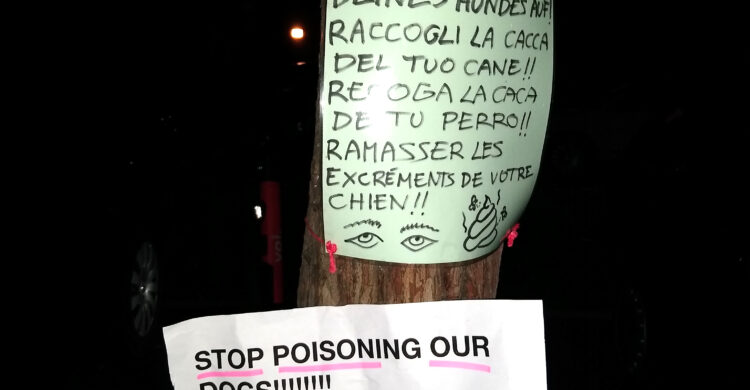 DEINES HUNDES AUF!
RACCOGLI LA CACCA
DEL TUO CANE!!
RECOGA LA CACA
DE TU PERRO!!
RAMASSER LES
EXCRÉMENTS DE VOTRE
CHIEN!!
STOP POISONING OUR
DOGS!!!!!!!!!